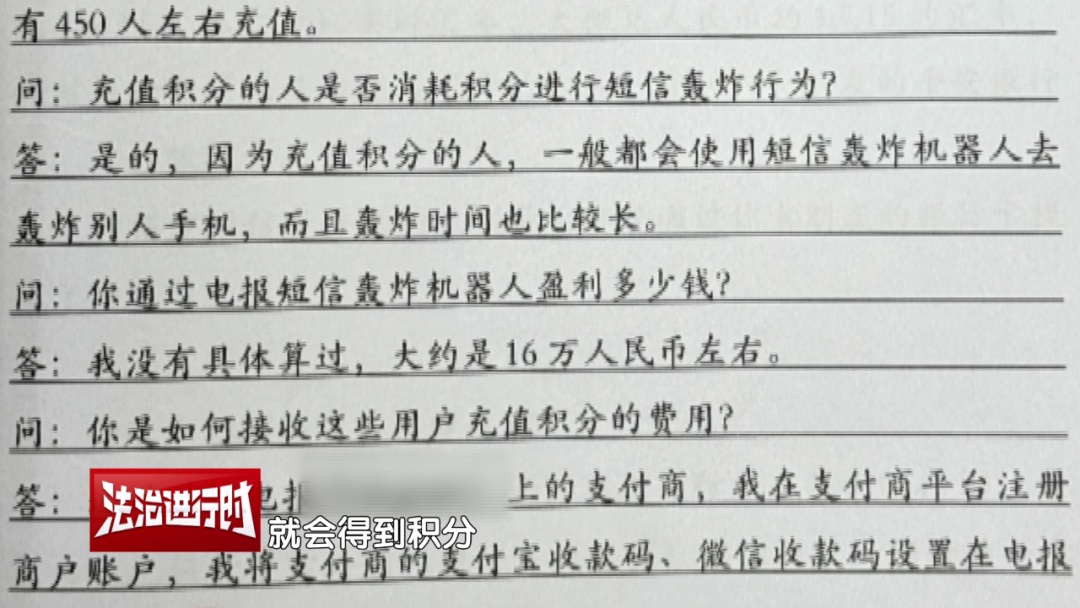 有 450 人左右充值。
问：充值积分的人是否消耗积分进行短信轰炸行为？
答：是的，因为充值积分的人，一般都会使用短信轰炸机器人去
轰炸别人手机，而且轰炸时间也比较长。
问：你通过电报短信轰炸机器人盈利多少钱？
答：我没有具体算过，大约是 16 万人民币左右。
问：你是如何接收这些用户充值积分的费用？
答：上的支付商，我在支付商平台注册
法治进行时
就会得到积分
商户账户，我将支付商的支付宝收款码、微信收款码设置在电报